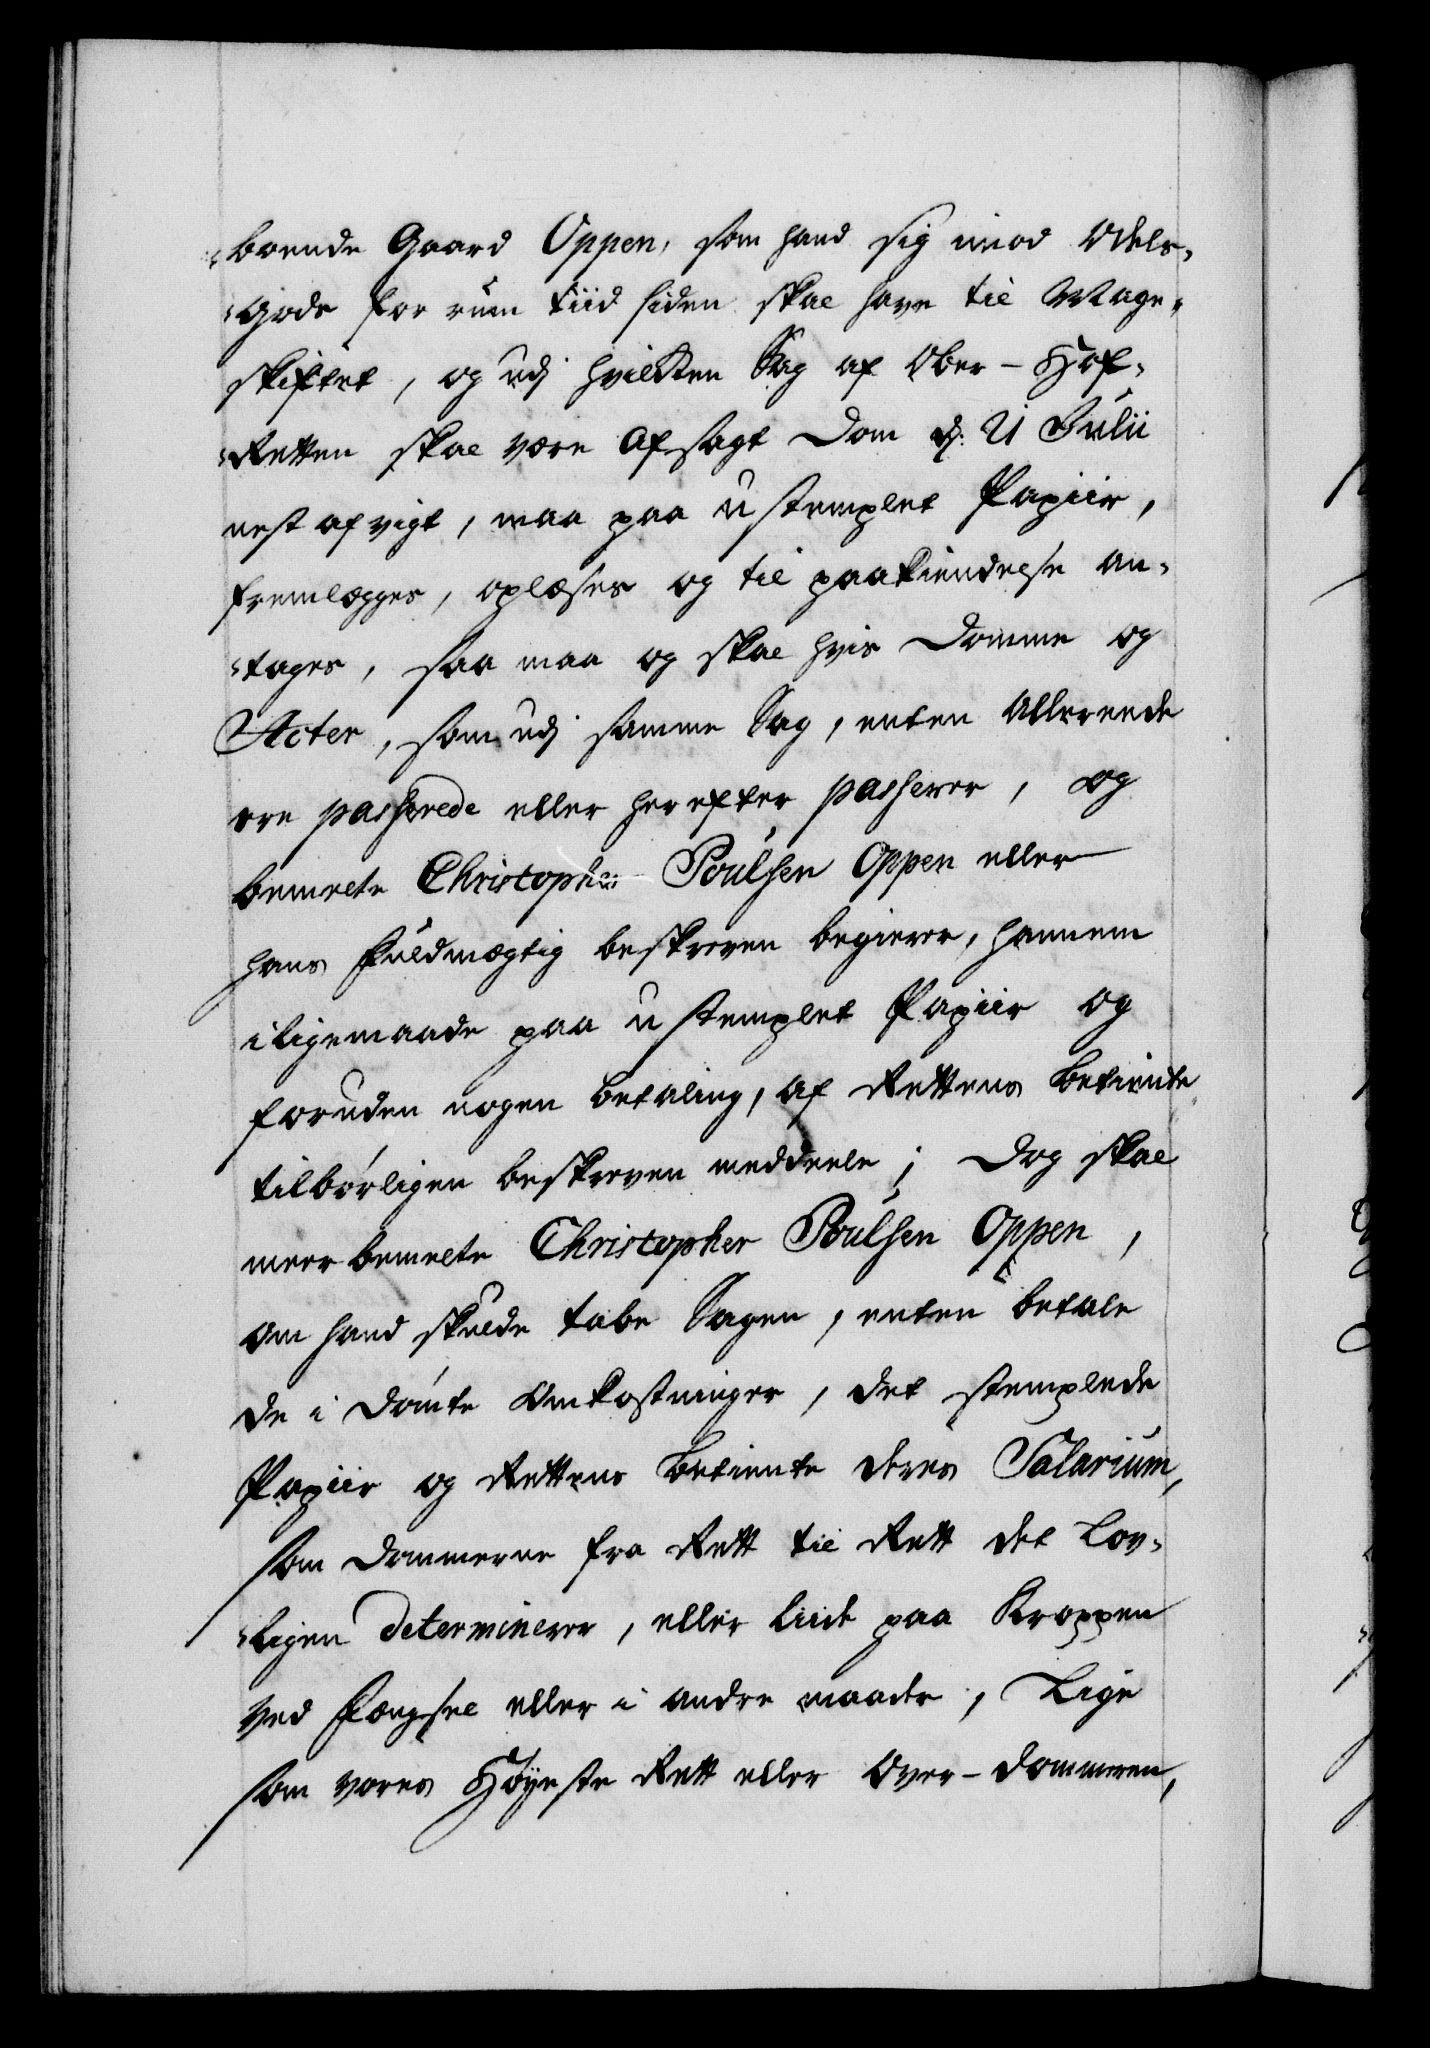 boende Gaard Oppen, som hand sig imod Odels-
gods for rum tiid siden skal have til Mage-
skiftet, og udj hvilken Sag af Ober-Hof-
Retten skal være afsagt Dom d: 21 Julii
nest afvigt, maa paa ustemplet Papiir,
fremlægges, oplæses og til paakiendelse an-
tages, saa maa og skal hvis Domme og
Acter, som udj samme Sag, enten allereede
ere passerede eller herefter passerer, og
bemelte Christopher Poulsen Oppen eller
hans Fuldmægtig beskreven begierer, hannem
iligemaade paa ustemplet Papiir og
foruden nogen betaling, af Rettens betiente
tilbørligen beskreven meddeele; Dog skal
meerbemelte Christopher Poulsen Oppen,
om hand skulde tabe Sagen, enten betale
de i dømte Omkostninger, det stemplede
Papiir og Rettens betiente deres Salarium,
som Dommerne fra Rett til Rett det lov-
ligen determinerer, eller liide paa Kroppen
ved Fængsel eller i andre maader, Lige
som vores Höyeste Rett eller Over-Dommeren,